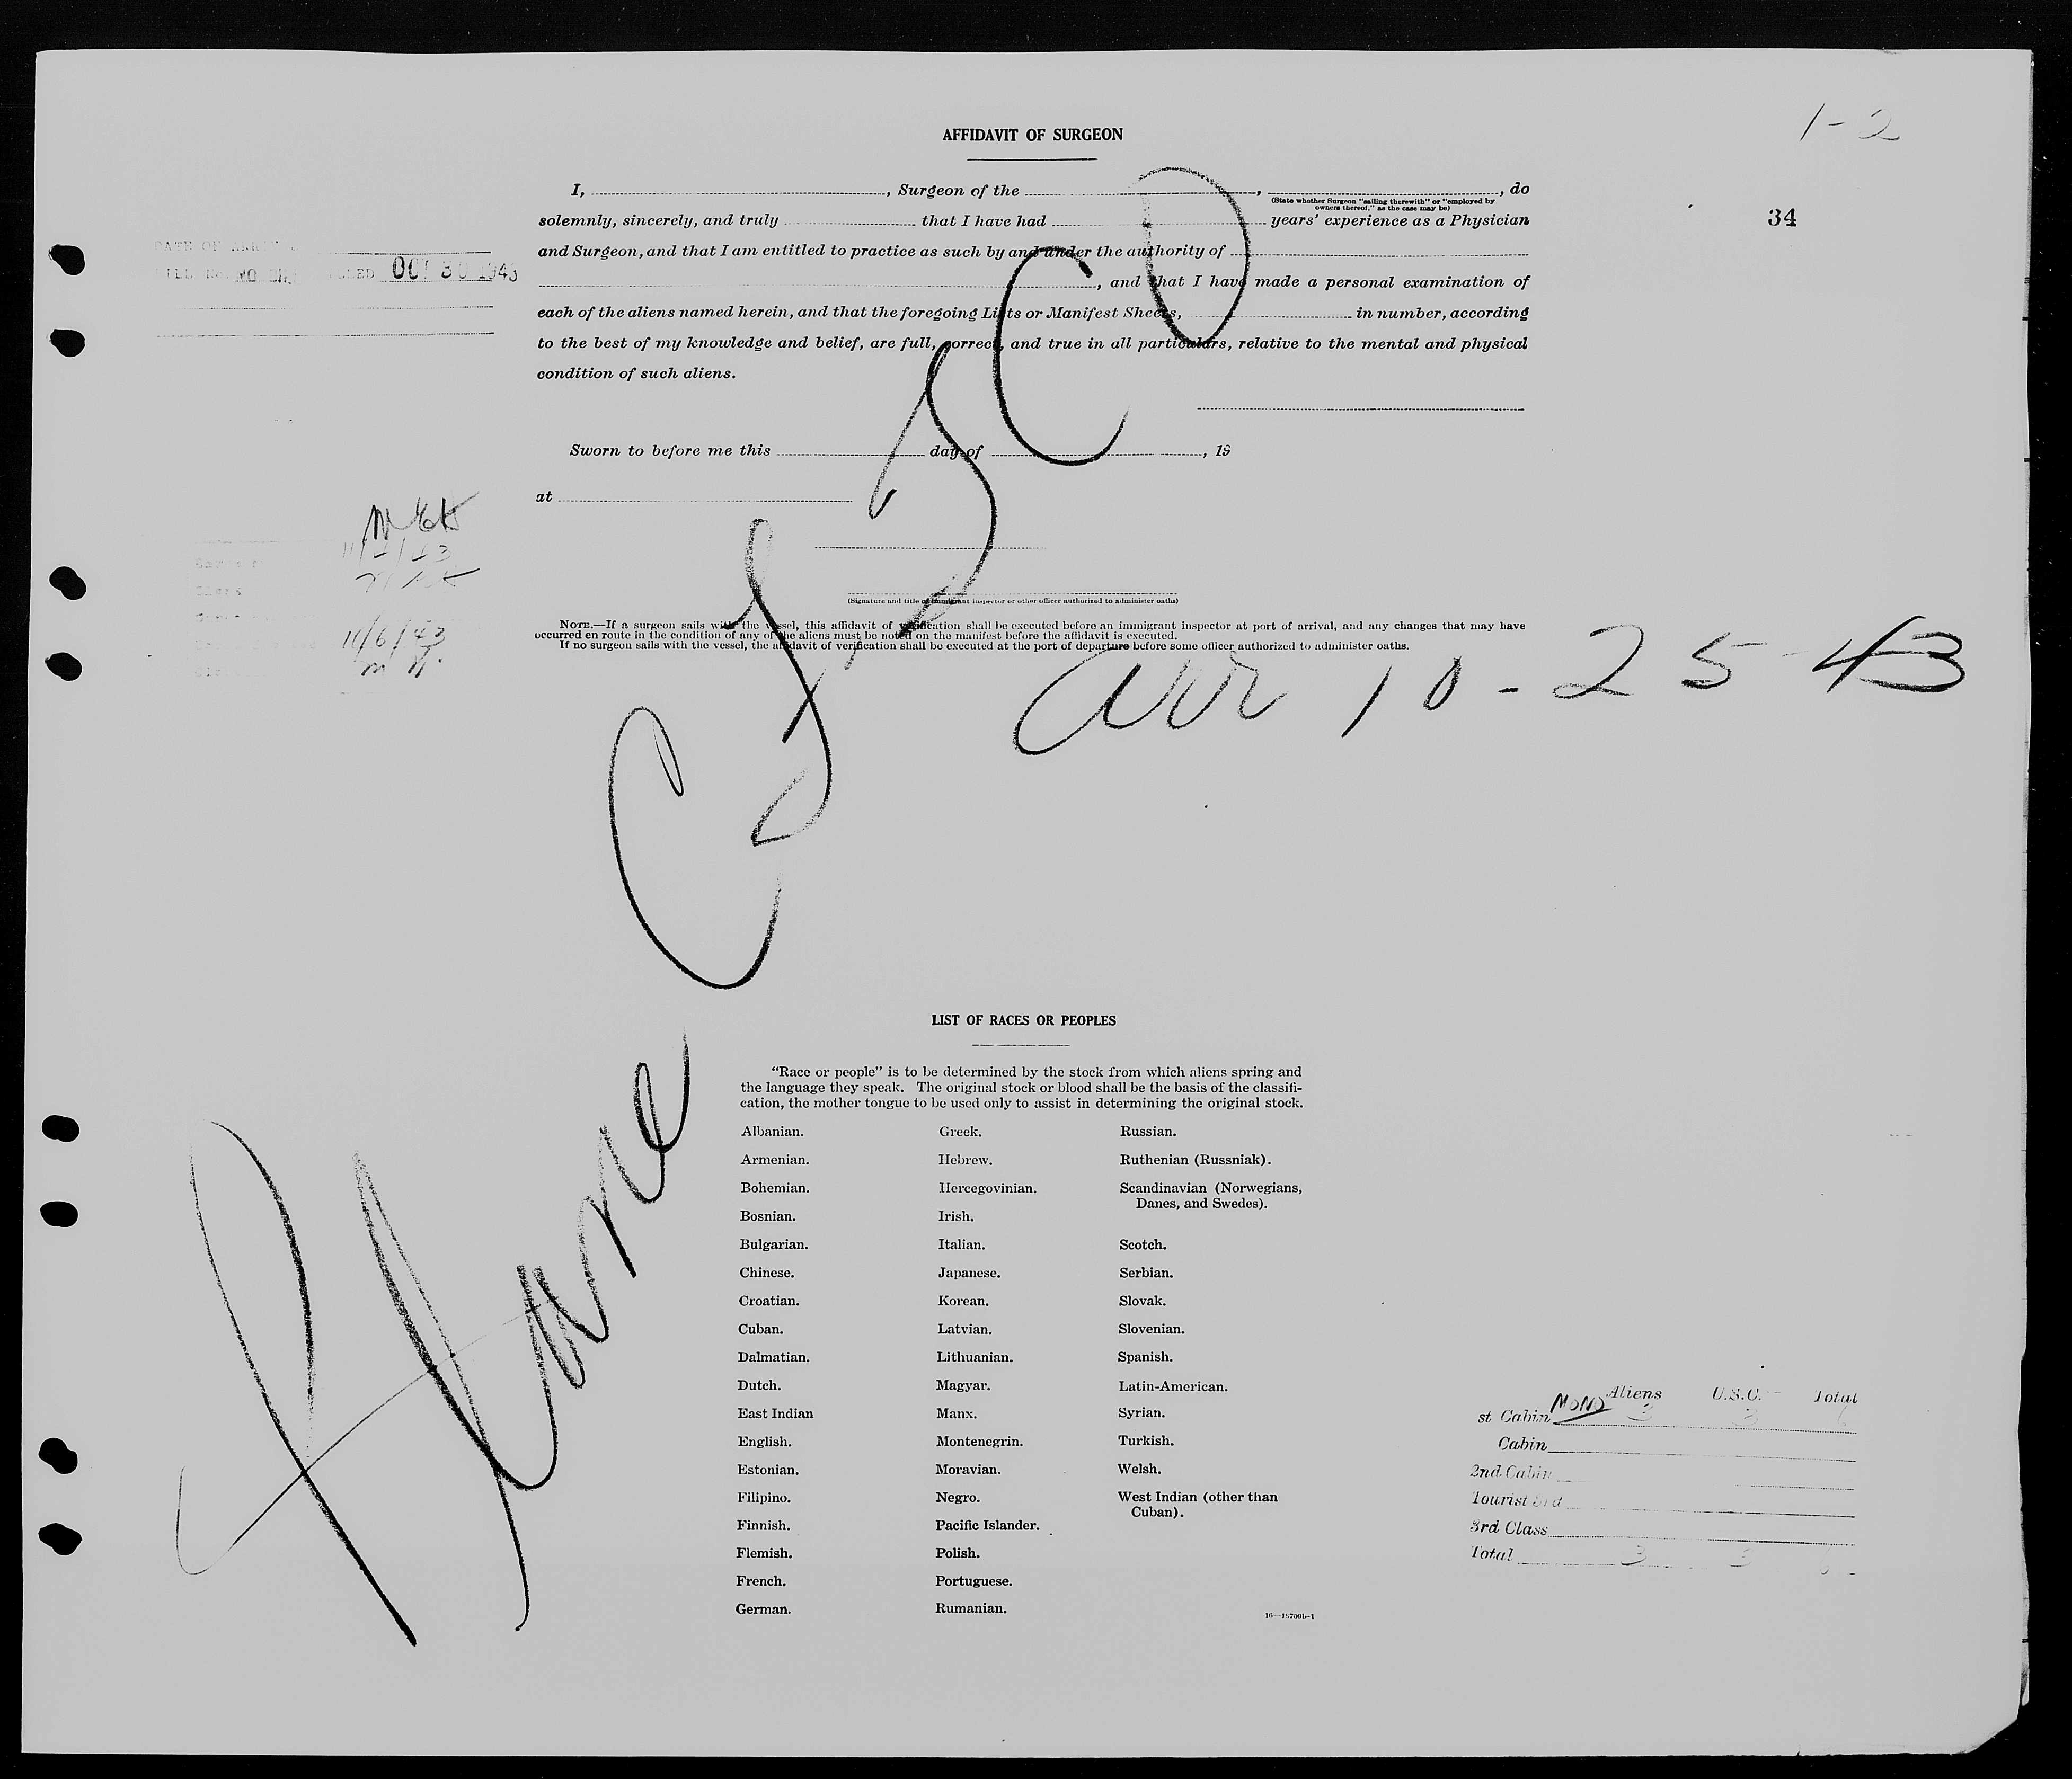 1-2
AFFIDAVIT OF SURGEON
34
I, , Surgeon of the , , do
(State whether Surgeon "sailing therewith" or "employed by
owners thereof," as the case may be)
solemnly, sincerely, and truly that I have had years' experience as a Physician
and Surgeon, and that I am entitled to practice as such by and under the authority of
, and that I have made a personal examination of
each of the aliens named herein, and that the foregoing Lists or Manifest Sheets, in number, according
to the best of my knowledge and belief, are full, correct, and true in all particulars, relative to the mental and physical
condition of such aliens.
DATE OF
OCT 30 1943
Sworn to before me this day of , 19
at
(Signature and title of immigrant inspector or other officer authorized to administer oaths)
NOTE.—If a surgeon sails with the vessel, this affidavit of verification shall be executed before an immigrant inspector at port of arrival, and any changes that may have
occurred en route in the condition of any of the aliens must be noted on the manifest before the affidavit is executed.
If no surgeon sails with the vessel, the affidavit of verification shall be executed at the port of departure before some officer authorized to administer oaths.
11/6/43
arr 10-25-43
Plane
LIST OF RACES OR PEOPLES
"Race or people" is to be determined by the stock from which aliens spring and
the language they speak. The original stock or blood shall be the basis of the classifi-
cation, the mother tongue to be used only to assist in determining the original stock.
Albanian.
Armenian.
Bohemian.
Bosnian.
Bulgarian.
Chinese.
Croatian.
Cuban.
Dalmatian.
Dutch.
East Indian
English.
Estonian.
Filipino.
Finnish.
Flemish.
French.
German.
Greek.
Hebrew.
Hercegovinian.
Irish.
Italian.
Japanese.
Korean.
Latvian.
Lithuanian.
Magyar.
Manx.
Montenegrin.
Moravian.
Negro.
Pacific Islander.
Polish.
Portuguese.
Rumanian.
Russian.
Ruthenian (Russniak).
Scandinavian (Norwegians,
Danes, and Swedes).
Scotch.
Serbian.
Slovak.
Slovenian.
Spanish.
Latin-American.
Syrian.
Turkish.
Welsh.
West Indian (other than
Cuban).
Aliens U.S.C. Total
st Cabin 3 3
Cabin
2nd Cabin
Tourist 3rd
3rd Class
Total 3 3